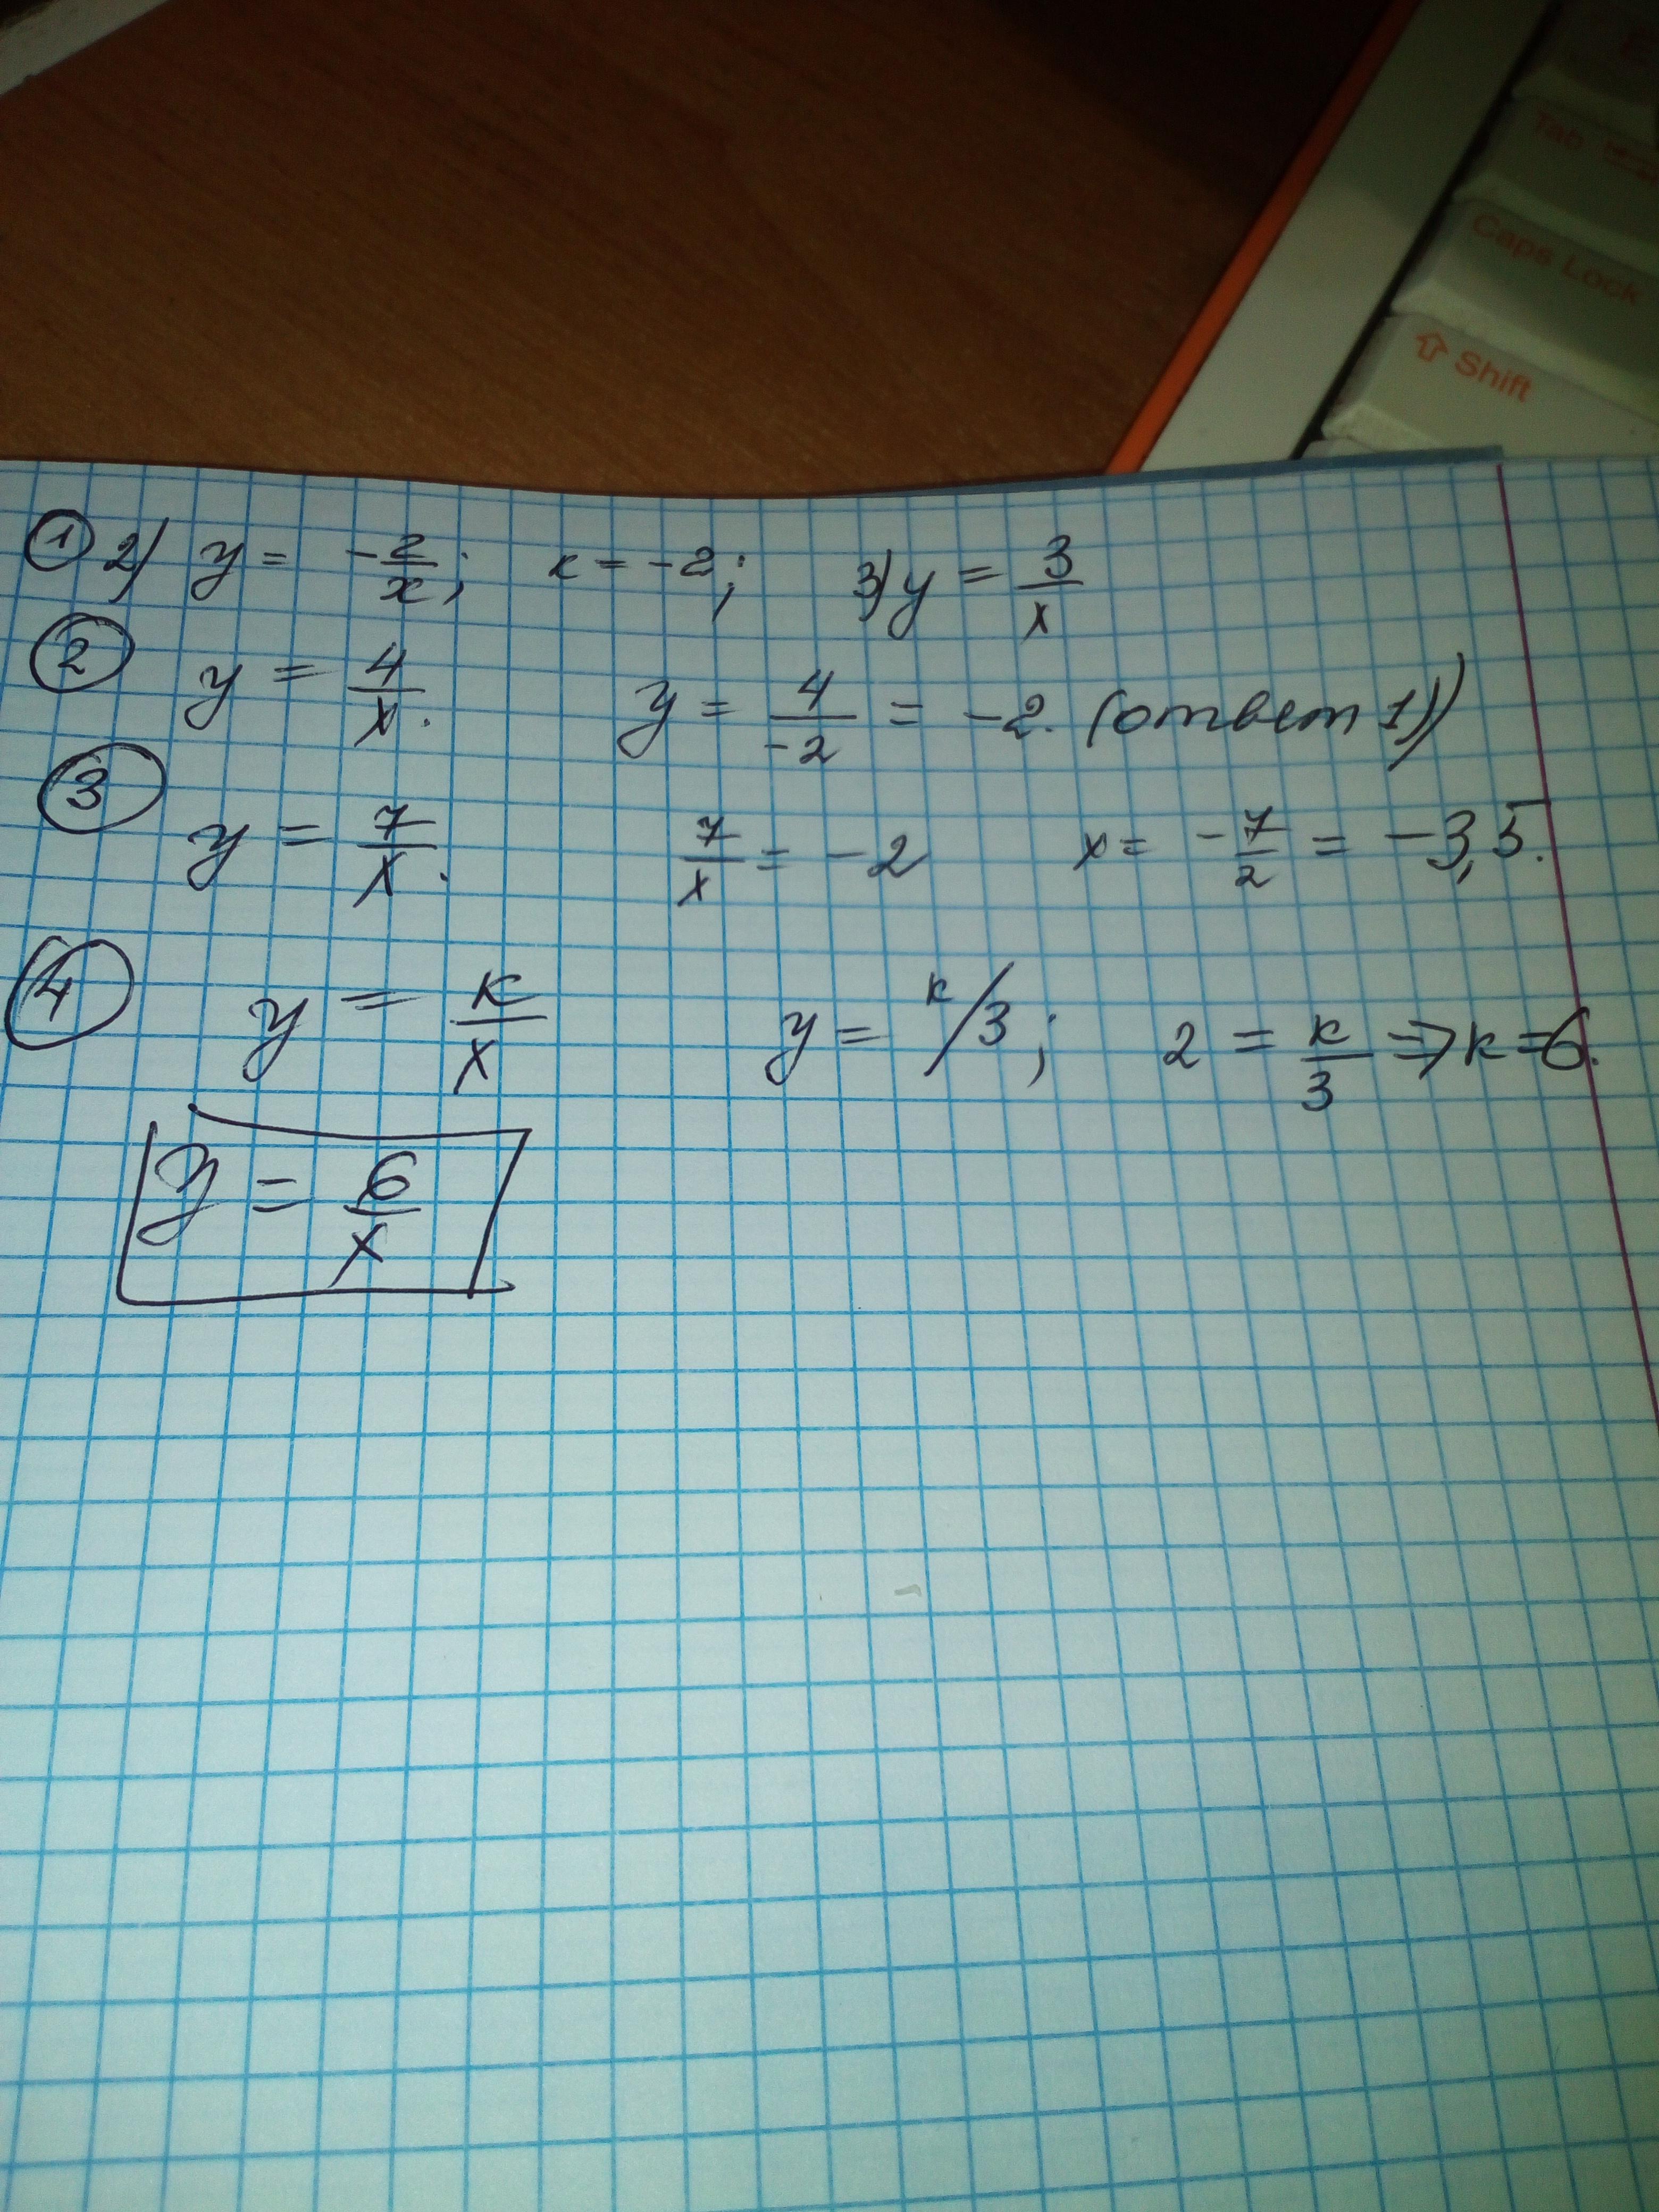 Tab
Caps Lock
⇧ Shift
① 2) y = -2/x; к = -2; 3) y = 3/x
② y = 4/x. y = 4/-2 = -2. (ответ 1))
③ y = 7/x. 7/x = -2 x = -7/2 = -3,5.
④ y = к/x y = к/3; 2 = к/3 ⇒ к = 6.
y = 6/x